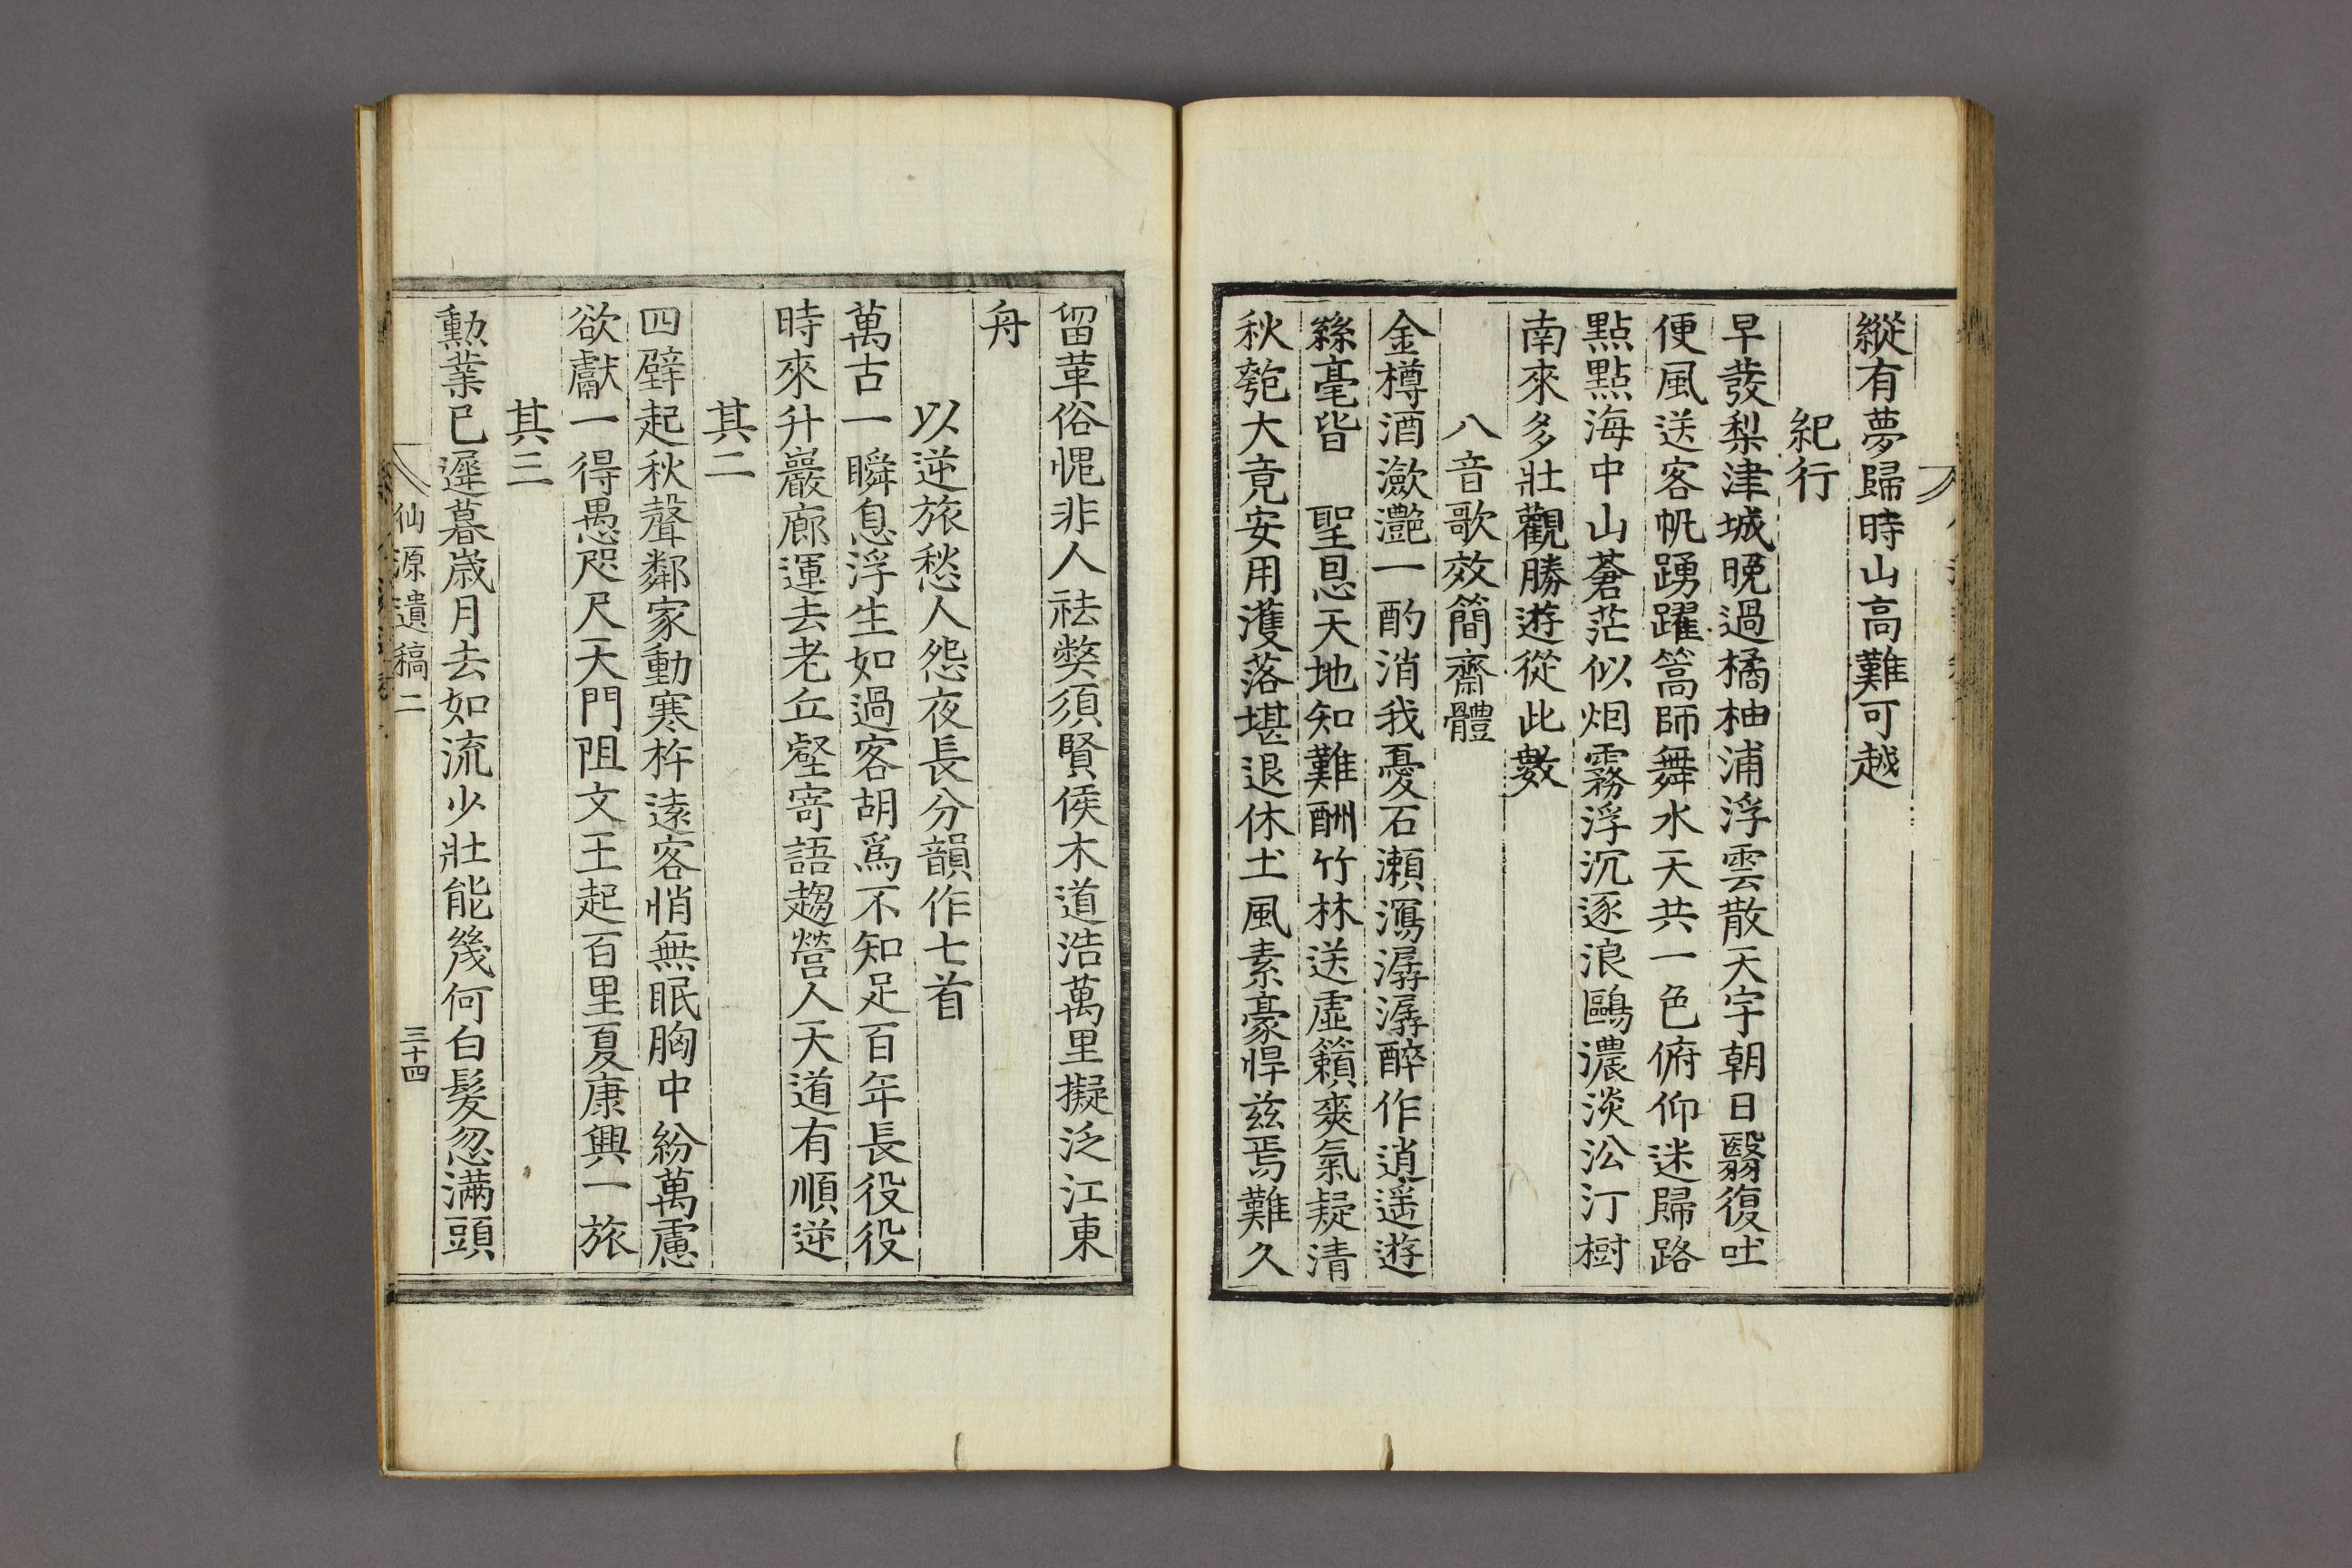 縱有夢歸時山高難可越
紀行
早發梨津城晩過橘柚浦浮雲散天宇朝日翳復吐
便風送客帆踴躍篙師舞水天共一色俯仰迷歸路
點點海中山蒼茫似烟霧浮沉逐浪鷗濃淡㳂汀樹
南來多壯觀勝遊從此數
八音歌效簡齋體
金樽酒瀲灧一酌消我憂石瀬瀉潺潺醉作逍遥遊
絲毫皆 聖恩天地知難酬竹林送虛籟爽氣疑清
秋匏大竟安用濩落堪退休土風素豪悍兹焉難久
留革俗愧非人祛弊須賢侯木道浩萬里擬泛江東
舟
以逆旅愁人怨夜長分韻作七首
萬古一瞬息浮生如過客胡爲不知足百年長役役
時來升巖廊運去老丘壑寄語趨營人天道有順逆
其二
四壁起秋聲鄰家動寒杵遠客悄無眠胸中紛萬慮
欲獻一得愚咫尺天門阻文王起百里夏康興一旅
其三
勳業已遲暮歲月去如流少壯能幾何白髮忽滿頭
仙源遺稿二
三十四